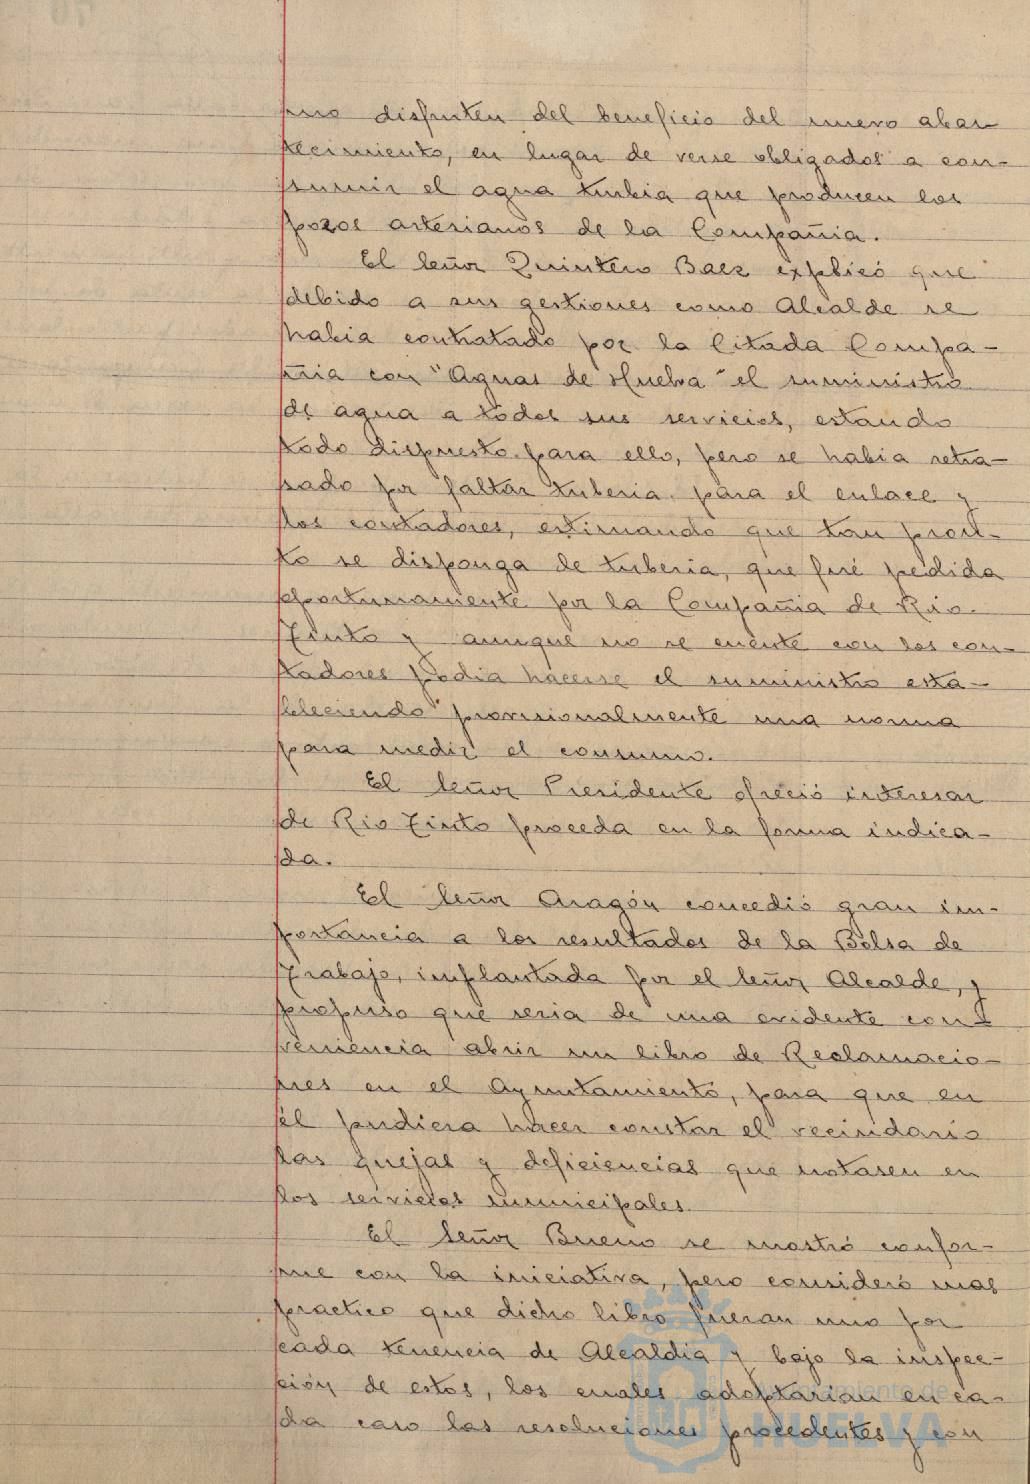 mo disfruten del beneficio del nuevo abas-
tecimiento, en lugar de verse obligados a con-
sumir el agua turbia que producen los
pozos artesianos de la Compañia.
El Señor Quintero Baez explicó que
debido a sus gestiones como Alcalde se
habia contratado por la Citada Compa-
ñia con "Aguas de Huelva" el suministro
de agua a todos sus servicios, estando
todo dispuesto para ello, pero se habia retra-
sado por faltar tuberia para el enlace y
los contadores, estimando que tan pron-
to se disponga de tuberia, que fué pedida
oportunamente por la Compañia de Rio-
Tinto y aunque no se cuente con los con-
tadores podia hacerse el suministro esta-
bleciendo provisionalmente una norma
para medir el consumo.
El Señor Presidente ofreció interesar
de Rio Tinto proceda en la forma indica-
da.
El Señor Aragón concedió gran im-
portancia a los resultados de la Bolsa de
Trabajo, implantada por el Señor Alcalde, y
propuso que seria de una evidente con-
veniencia abrir un libro de Reclamacio-
nes en el Ayuntamiento, para que en
él pudiera hacer constar el vecindario
las quejas y deficiencias que notasen en
los servicios municipales.
El Señor Bueno se mostró confor-
me con la iniciativa, pero consideró mas
practico que dicho libro fueran uno por
cada tenencia de Alcaldia y bajo la inspec-
ción de estos, los cuales adoptarian en ca-
da caso las resoluciones procedentes y con
Ayuntamiento de
HUELVA